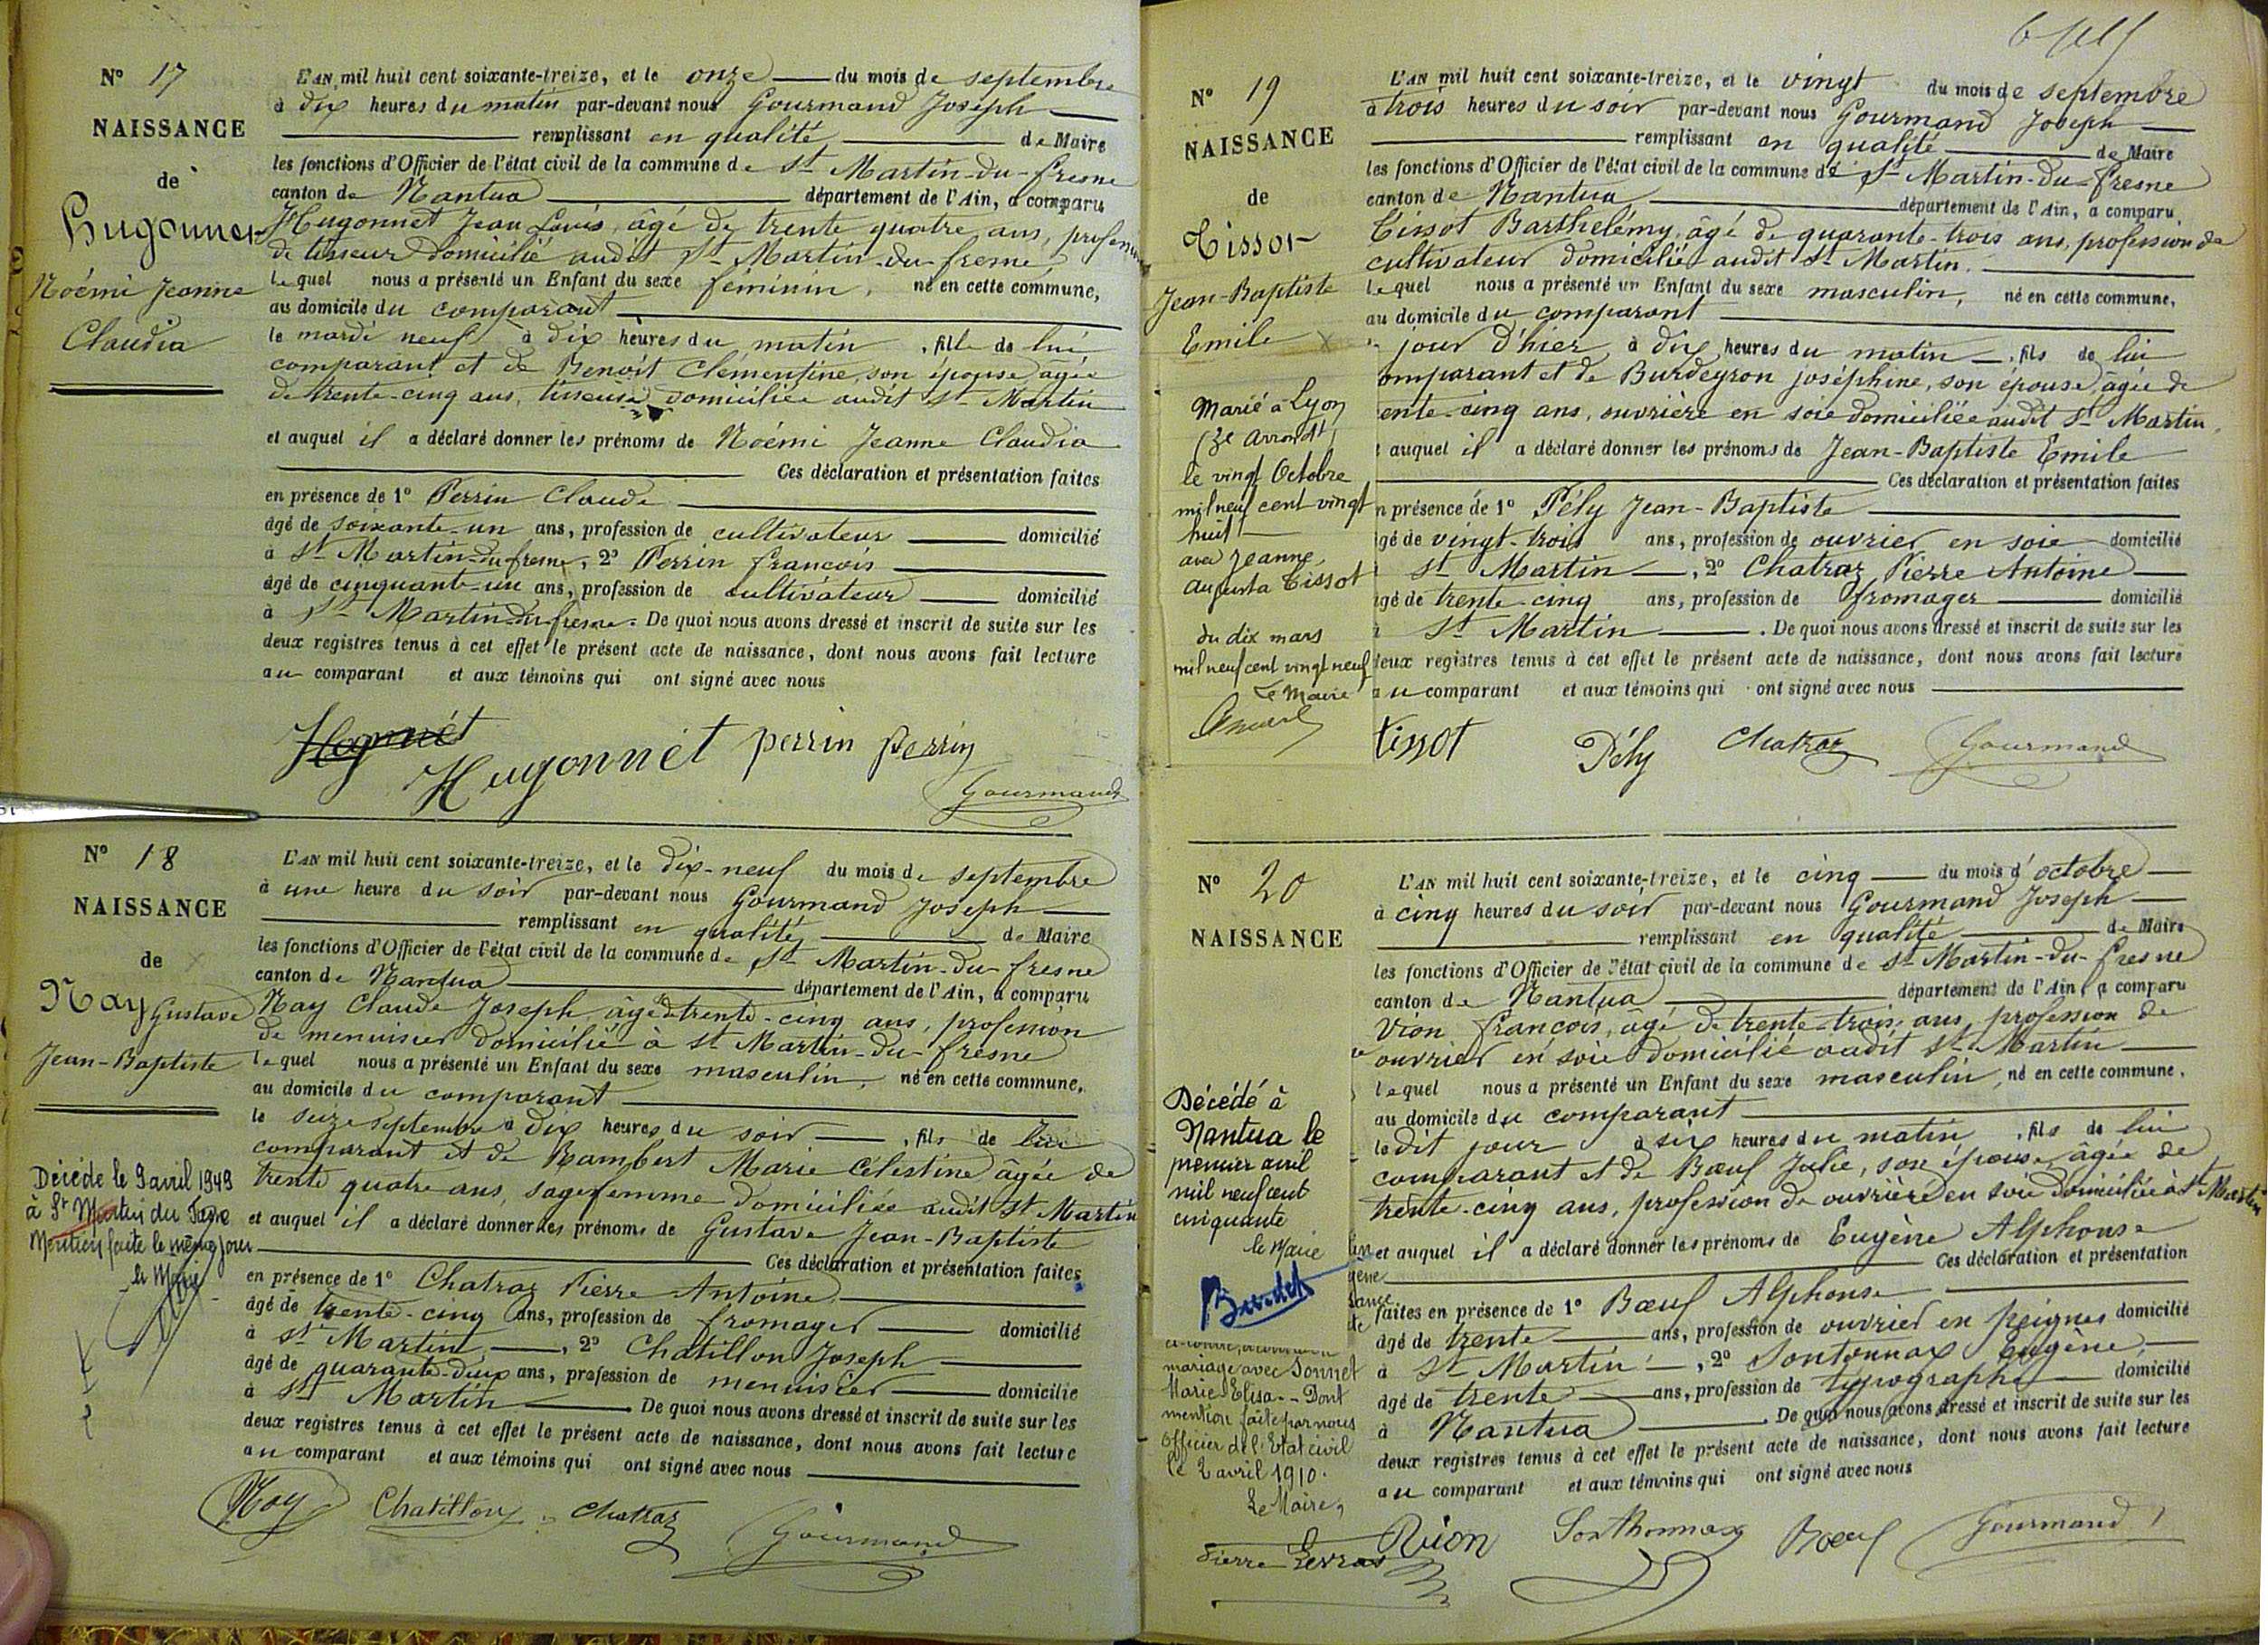 N° 17
NAISSANCE
de
Hugonnet
Noémi Jeanne
Claudia
L'AN mil huit cent soixante-treize, et le onze du mois de septembre
à dix heures du matin par-devant nous Gourmand Joseph
remplissant en qualité de Maire
les fonctions d'Officier de l'état civil de la commune de St Martin-du-fresne
canton de Nantua département de l'Ain, a comparu
Hugonnet Jean Louis, âgé de trente quatre ans, profession
de tisseur domicilié audit St Martin-du-fresne,
lequel nous a présenté un Enfant du sexe féminin, né en cette commune,
au domicile du comparant
le mardi neuf à dix heures du matin, fille de lui
comparant et de Benoit Clémentine, son épouse âgée
de trente-cinq ans, tisseuse domiciliée audit St Martin
et auquel il a déclaré donner les prénoms de Noémi Jeanne Claudia
Ces déclaration et présentation faites
en présence de 1° Perrin Claude
âgé de soixante-un ans, profession de cultivateur domicilié
à St Martin-du-fresne, 2° Perrin françois
âgé de cinquante-un ans, profession de cultivateur domicilié
à St Martin-du-fresne. De quoi nous avons dressé et inscrit de suite sur les
deux registres tenus à cet effet le présent acte de naissance, dont nous avons fait lecture
au comparant et aux témoins qui ont signé avec nous
Hugonnet perrin perrin
Gourmand
N° 18
NAISSANCE
de
Nay Gustave
Jean-Baptiste
Décédé le 9 avril 1949
à St Martin du
Mention faite le même jour
le Maire
L'AN mil huit cent soixante-treize, et le dix-neuf du mois de septembre
à une heure du soir par-devant nous Gourmand Joseph
remplissant en qualité de Maire
les fonctions d'Officier de l'état civil de la commune de St Martin-du-fresne
canton de Nantua département de l'Ain, a comparu
Nay Claude Joseph, âgé de trente-cinq ans, profession
de menuisier domicilié à St Martin-du-fresne
lequel nous a présenté un Enfant du sexe masculin, né en cette commune,
au domicile du comparant
le seize septembre à dix heures du soir, fils de lui
comparant et de Rambert Marie Célestine âgée de
trente quatre ans, sagefemme domiciliée audit St Martin
et auquel il a déclaré donner les prénoms de Gustave Jean-Baptiste
Ces déclaration et présentation faites
en présence de 1° Chatraz Pierre Antoine
âgé de trente-cinq ans, profession de fromager domicilié
à St Martin, 2° Chatillon Joseph
âgé de quarante-deux ans, profession de menuisier domicilié
à St Martin De quoi nous avons dressé et inscrit de suite sur les
deux registres tenus à cet effet le présent acte de naissance, dont nous avons fait lecture
au comparant et aux témoins qui ont signé avec nous
Nay Chatillon Chatraz Gourmand
N° 19
NAISSANCE
de
Tissot
Jean-Baptiste
Emile
Marié à Lyon
(3e Arrondt)
le vingt Octobre
mil neuf cent vingt
huit
avec Jeanne
Augusta Tissot
du dix mars
mil neuf cent vingt neuf
Le Maire
L'AN mil huit cent soixante-treize, et le vingt du mois de septembre
à trois heures du soir par-devant nous Gourmand Joseph
remplissant en qualité de Maire
les fonctions d'Officier de l'état civil de la commune de St Martin-du-fresne
canton de Nantua département de l'Ain, a comparu
Tissot Barthelémy, âgé de quarante-trois ans, profession de
cultivateur domicilié audit St Martin.
lequel nous a présenté un Enfant du sexe masculin, né en cette commune,
au domicile du comparant
jour d'hier à dix heures du matin, fils de lui
omparant et de Burdeyron joséphine, son épouse, âgée de
ente-cinq ans, ouvrière en soie domiciliée audit St Martin,
auquel il a déclaré donner les prénoms de Jean-Baptiste Emile
Ces déclaration et présentation faites
n présence de 1° Pély Jean-Baptiste
gé de vingt-trois ans, profession de ouvrier en soie domicilié
St Martin, 2° Chatraz Pierre Antoine
gé de trente-cinq ans, profession de fromager domicilié
à St Martin. De quoi nous avons dressé et inscrit de suite sur les
deux registres tenus à cet effet le présent acte de naissance, dont nous avons fait lecture
au comparant et aux témoins qui ont signé avec nous
tissot Pély Chatraz Gourmand
N° 20
NAISSANCE
Décédé à
Nantua le
premier avril
mil neuf cent
cinquante
le Maire
mariage avec Sonnet
Marie Elisa.- Dont
mention faite par nous
Officier de l'Etat civil
le 2 avril 1910.
Le Maire,
L'AN mil huit cent soixante-treize, et le cinq du mois d'octobre
à cinq heures du soir par-devant nous Gourmand Joseph
remplissant en qualité de Maire
les fonctions d'Officier de l'état civil de la commune de St Martin-du-fresne
canton de Nantua département de l'Ain, a comparu
Vion françois, âgé de trente-trois ans, profession de
ouvrier en soie domicilié audit St Martin
lequel nous a présenté un Enfant du sexe masculin, né en cette commune,
au domicile du comparant
le dit jour à six heures du matin, fils de lui
comparant et de Bœuf Julie, son épouse, âgée de
trente-cinq ans, profession de ouvrière en soie domiciliée à St Martin
et auquel il a déclaré donner les prénoms de Eugène Alphonse
Ces déclaration et présentation
faites en présence de 1° Bœuf Alphonse
âgé de trente ans, profession de ouvrier en peignes domicilié
à St Martin, 2° Sontonnax Eugène,
âgé de trente ans, profession de typographe domicilié
à Nantua. De quoi nous avons dressé et inscrit de suite sur les
deux registres tenus à cet effet le présent acte de naissance, dont nous avons fait lecture
au comparant et aux témoins qui ont signé avec nous
Pierre Vion Sonthonnax Bœuf Gourmand